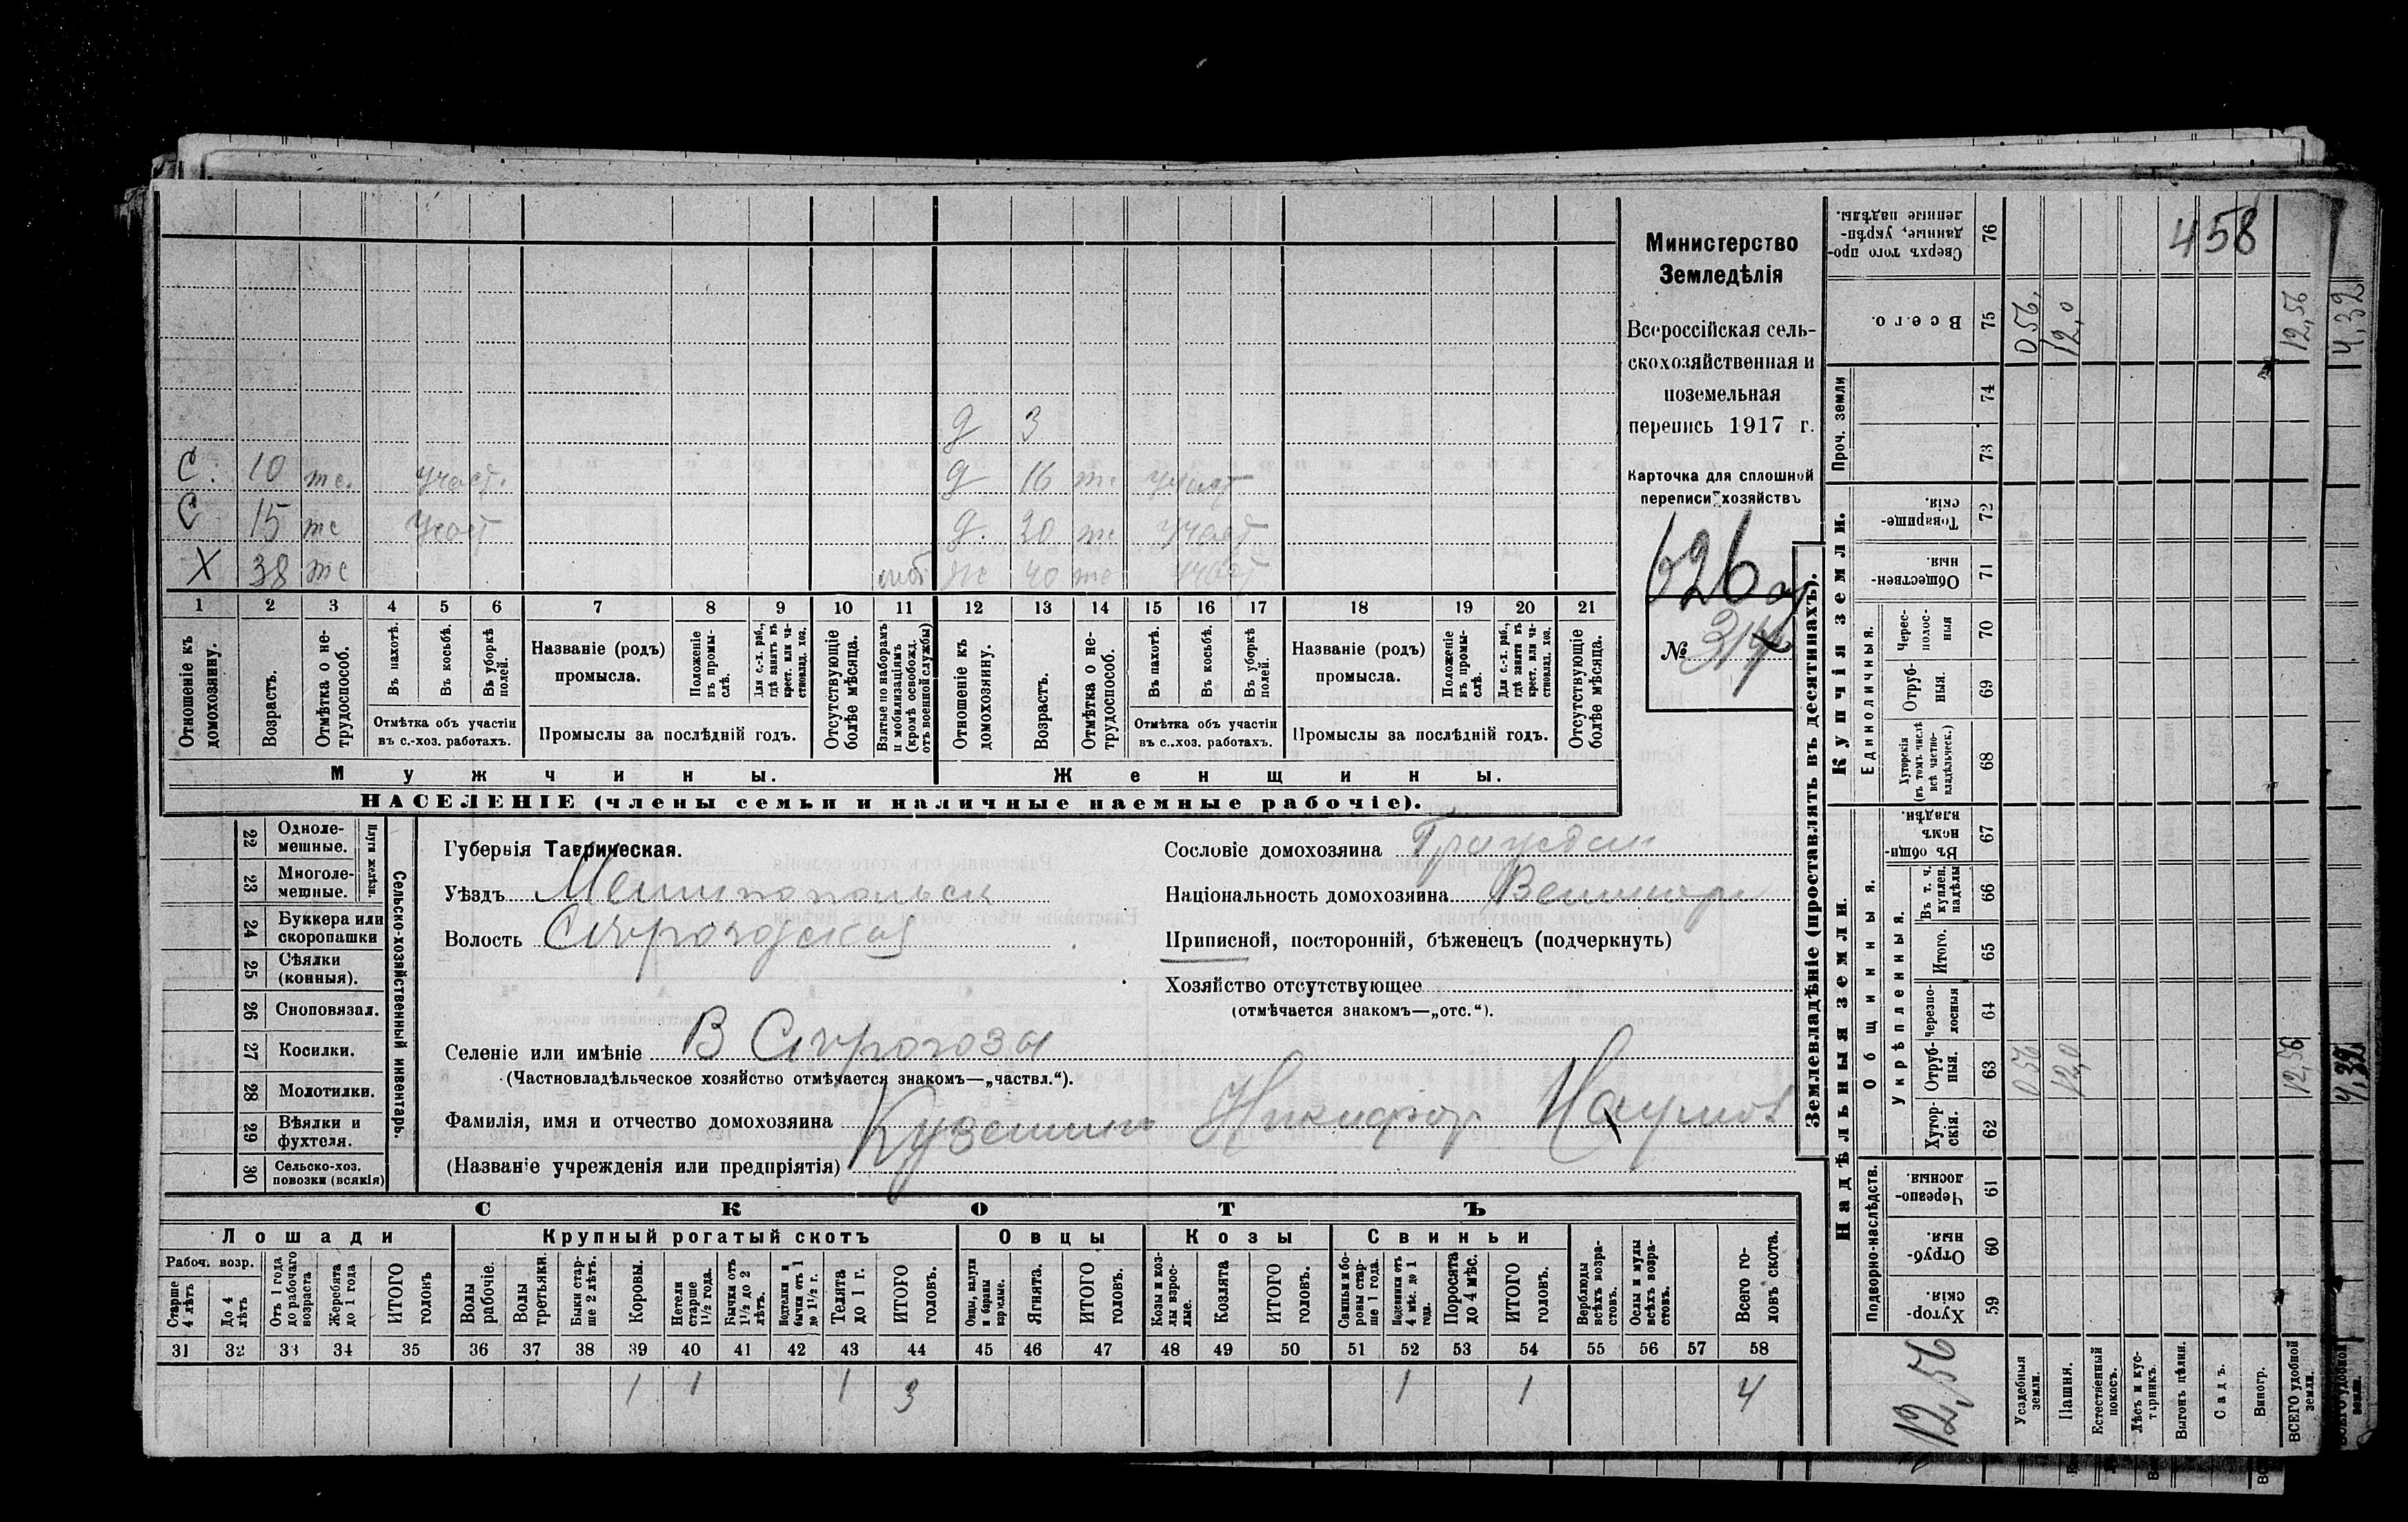 458
Министерство
Земледѣлія
Всероссійская сель-
скохозяйственная и
поземельная
перепись 1917 г.
Карточка для сплошной
переписи хозяйствъ
626
№ 314
д 3
С. 10 т. участ. д 16 т. участ
С 15 т участ д. 20 т участ
Х 38 т моб. ж 40 т участ
1 2 3 4 5 6 7 8 9 10 11 12 13 14 15 16 17 18 19 20 21
Отношеніе къ домохозяину.
Возрастъ.
Отмѣтка о не-трудоспособ.
Въ пахотѣ.
Въ косьбѣ.
Въ уборкѣ полей.
Отмѣтка объ участіи
въ с.-хоз. работахъ.
Названіе (родъ)
промысла.
Положеніе въ промы-слѣ.
Для с.-х. раб., гдѣ занятъ въ крест. или ча-стновлад. хоз.
Промыслы за послѣдній годъ.
Отсутствующіе болѣе мѣсяца.
Взятые по наборамъ и мобилизаціямъ (кромѣ освобожд. отъ военной службы)
Отношеніе къ домохозяину.
Возрастъ.
Отмѣтка о не-трудоспособ.
Въ пахотѣ.
Въ косьбѣ.
Въ уборкѣ полей.
Отмѣтка объ участіи
въ с.-хоз. работахъ.
Названіе (родъ)
промысла.
Положеніе въ промы-слѣ.
Для с.-х. раб., гдѣ занята въ крест. или ча-стновлад. хоз.
Промыслы за послѣдній годъ.
Отсутствующіе болѣе мѣсяца.
Мужчины. Женщины.
НАСЕЛЕНІЕ (члены семьи и наличные наемные рабочіе).
Сельско-хозяйственный инвентарь.
Плуги желѣзн.
22 Одноле-мешные.
23 Многоле-мешные.
24 Буккера или скоропашки
25 Сѣялки (конныя).
26 Сноповязал.
27 Косилки.
28 Молотилки.
29 Вѣялки и фухтеля.
30 Сельско-хоз. повозки (всякія)
Губернія Таврическая.
Уѣздъ Мелитопольск
Волость Сѣрогозская
Селеніе или имѣніе В Сѣрогозы
(Частновладѣльческое хозяйство отмѣчается знакомъ—„частвл.“).
Фамилія, имя и отчество домохозяина Куземин Никифор Наумов
(Названіе учрежденія или предпріятія)
Сословіе домохозяина Граждан
Національность домохозяина Великор
Приписной, посторонній, бѣженецъ (подчеркнуть)
Хозяйство отсутствующее
(отмѣчается знакомъ—„отс.“).
СКОТЪ
Лошади Крупный рогатый скотъ Овцы Козы Свиньи
Рабоч. возр.
Старше 4 лѣтъ
До 4 лѣтъ
Отъ 1 года до рабочаго возраста
Жеребята до 1 года
ИТОГО головъ
Волы рабочіе.
Волы третьяки.
Быки стар-ше 2 лѣтъ.
Коровы.
Нетели старше 1½ года.
Бычки отъ 1½ до 2 лѣтъ.
Подтелки и бычки отъ 1 до 1½ г.
Телята до 1 г.
ИТОГО головъ.
Овцы, валухи и бараны взрослые.
Ягнята.
ИТОГО головъ.
Козы и коз-лы взрос-лые.
Козлята
ИТОГО головъ.
Свиньи и бо-ровы стар-ше 1 года.
Подсвинки отъ 4 мѣс. до 1 года.
Поросята до 4 мѣс.
ИТОГО головъ.
Верблюды всѣхъ возра-стовъ.
Ослы и мулы всѣхъ возра-стовъ.
Всего го-ловъ скота.
31 32 33 34 35 36 37 38 39 40 41 42 43 44 45 46 47 48 49 50 51 52 53 54 55 56 57 58
1 1 1 3 1 1 4
Землевладѣніе (проставлять въ десятинахъ).
Надѣльныя земли. Купчія земли.
Проч. земли
Подворно-наслѣдств.
Общинныя.
Укрѣпленныя.
Единоличныя.
59 Хутор-скія.
60 Отруб-ныя.
61 Черезпо-лосныя
62 Хутор-скія.
63 Отруб-ныя.
64 Черезпо-лосныя
65 Итого.
66 Въ т. ч. куплен. надѣлы
67 Въ общи-номъ владѣн.
68 Хуторскія (въ томъ числѣ всѣ частно-владѣльческ.)
69 Отруб-ныя.
70 Черес-полос-ныя
71 Обществен-ныя
72 Товарище-скія.
73
74
75 Всего.
76 Сверхъ того про-данные, укрѣп-ленные надѣлы.
12,56
Усадебныя земли. 0 56 0 56,
Пашня. 12,0 12,0
Естественный покосъ.
Лѣсъ и кус-тарникъ.
Выгонъ цѣлин.
Садъ.
Виногр.
ВСЕГО удобной земли. 12,56 12,56
4,32 4,32